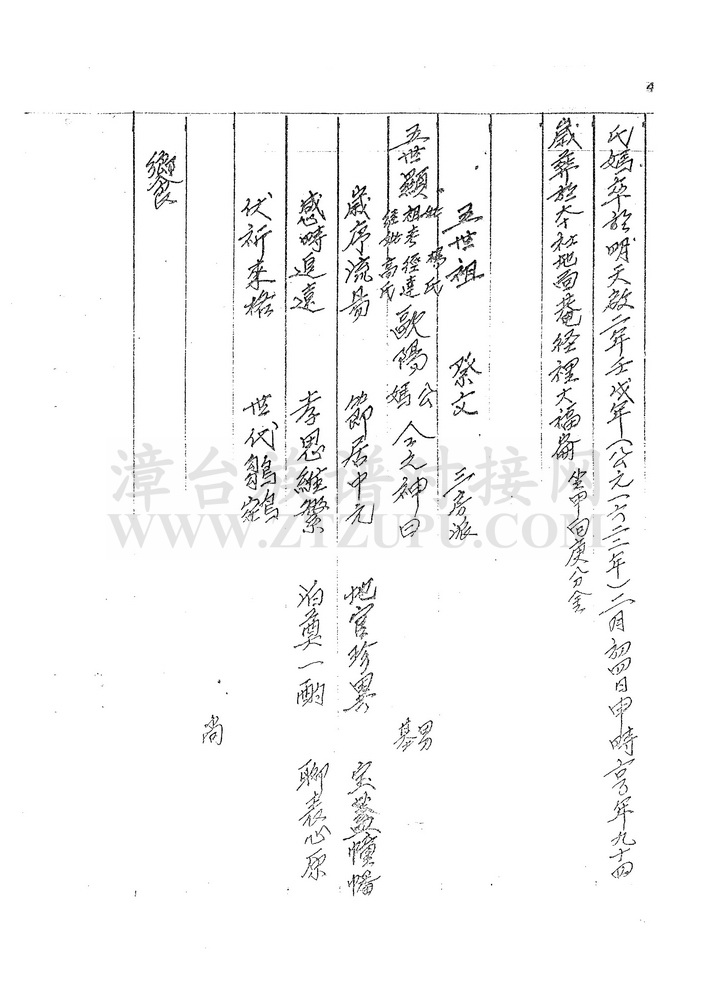 4
氏媽卒於明天啟二年壬戌年(公元一六二二年)二月初四日申時享年九十四
歲葬於本社地面菴経裡大福崙 坐甲向庚分金
五世祖 祭文 三房派
五世顯祖考經達 妣 楊氏 經妣高氏 歐陽公媽 仝之神曰 男 基
歲序流易 節居中元 地官珍異 宝蓋幢幡
感時追遠 孝思維縈 泊奠一酌 聊表心原
伏祈來格 世代
尚
饗
漳台族谱对接网
WWW.ZTZUPU.COM